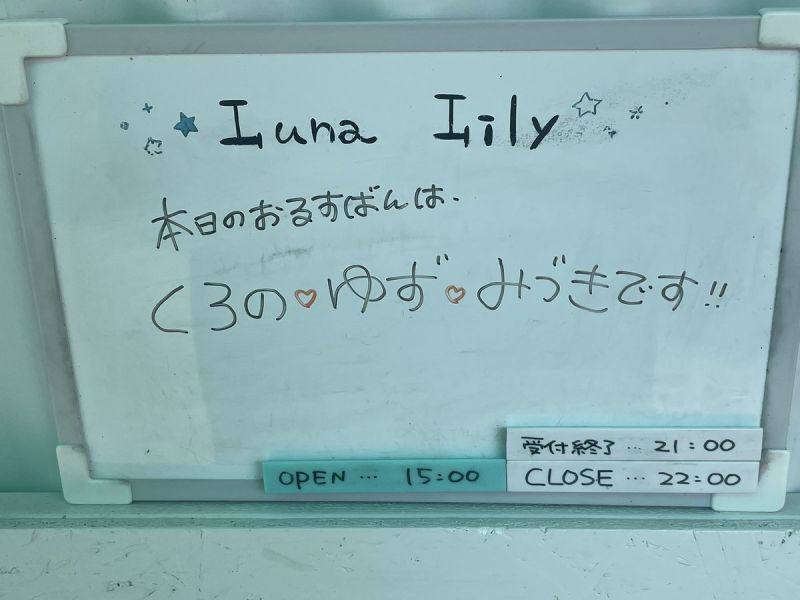 Luna Lily
本日のおるすばんは.
くろの♡ゆず♡みづきです!!
受付終了…21:00
OPEN…15:00
CLOSE…22:00